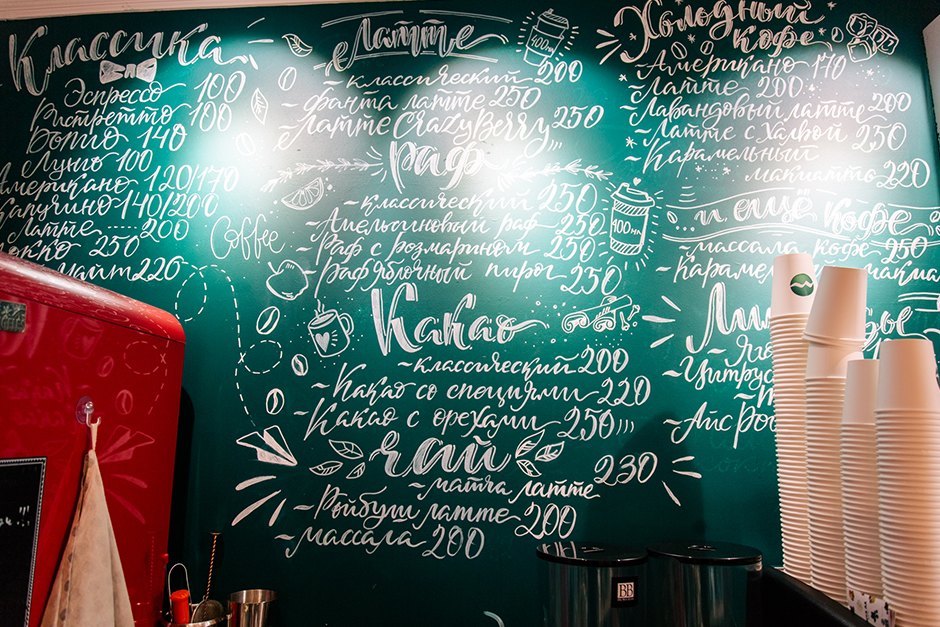 Классика
Эспрессо 100
Ристретто 100
Допио 140
Лунго 100
Американо 120/170
Капучино 140/200
Латте 200
Мокко 250
уайт 220
Coffee
Латте
400
- классический 200
- фанта латте 250
- Латте CrazyBerry 250
Раф
- классический 250
- Апельсиновый раф 250
- Раф с розмарином 250
- Раф яблочный пирог 250
400 мл
Какао
- классический 200
- Какао со специями 220
- Какао с орехами 250
Чай
- матча латте 230
- Ройбуш латте 200
- массала 200
Холодный
кофе
- Американо 170
- Латте 200
- Лавандовый латте 200
- Латте с Халвой 250
- Карамельный
макиатто 220
и ещё кофе
- массала кофе 250
- Карамельный
Цитрус
- Айс
BB